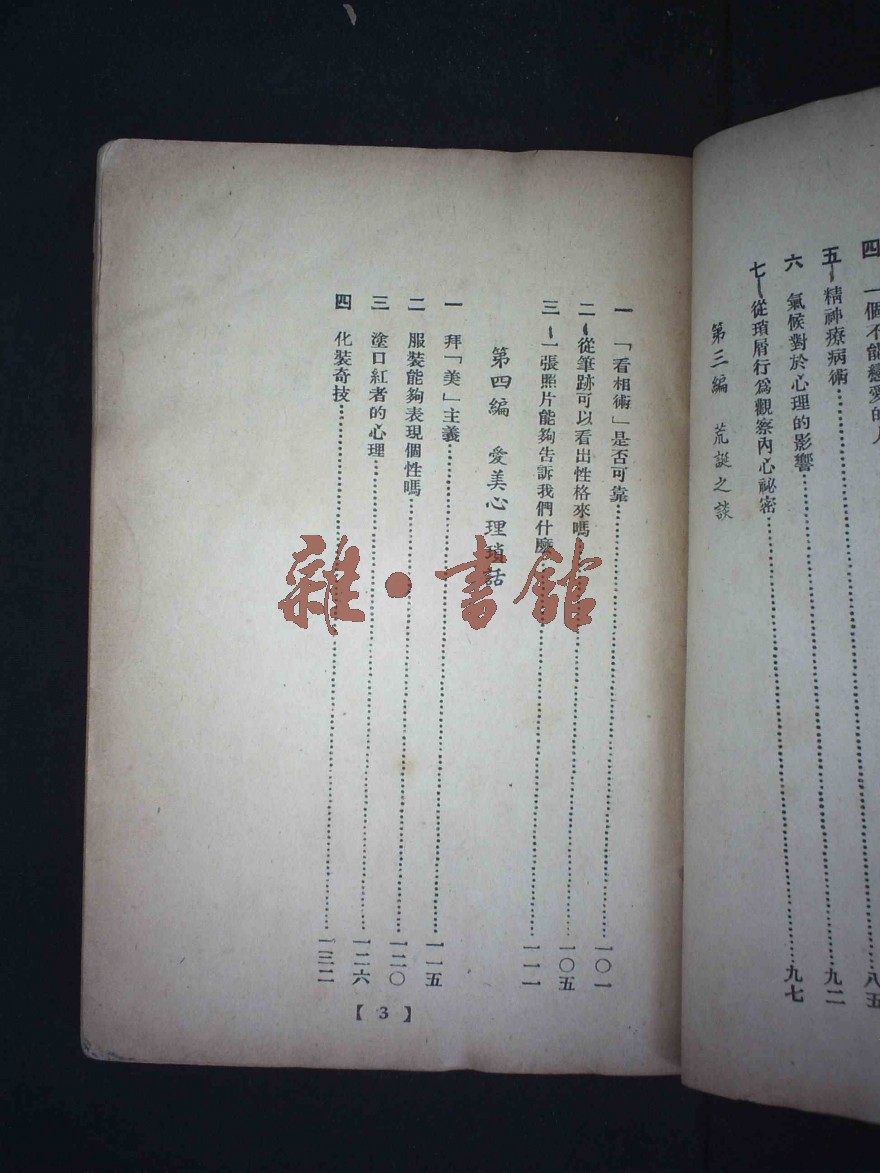 四 一個不能戀愛的人……八五
五 精神療病術……九二
六 氣候對於心理的影響
七 從瑣屑行爲觀察內心祕密……九七
第三編 荒誕之談
一 「看相術」是否可靠……一〇一
二 從筆跡可以看出性格來嗎……一〇五
三 一張照片能夠告訴我們什麼……一一一
第四編 愛美心理瑣話
一 拜「美」主義……一一五
二 服裝能夠表現個性嗎……一二〇
三 塗口紅者的心理……一二六
四 化裝奇技……一三二
【3】
雜·書館